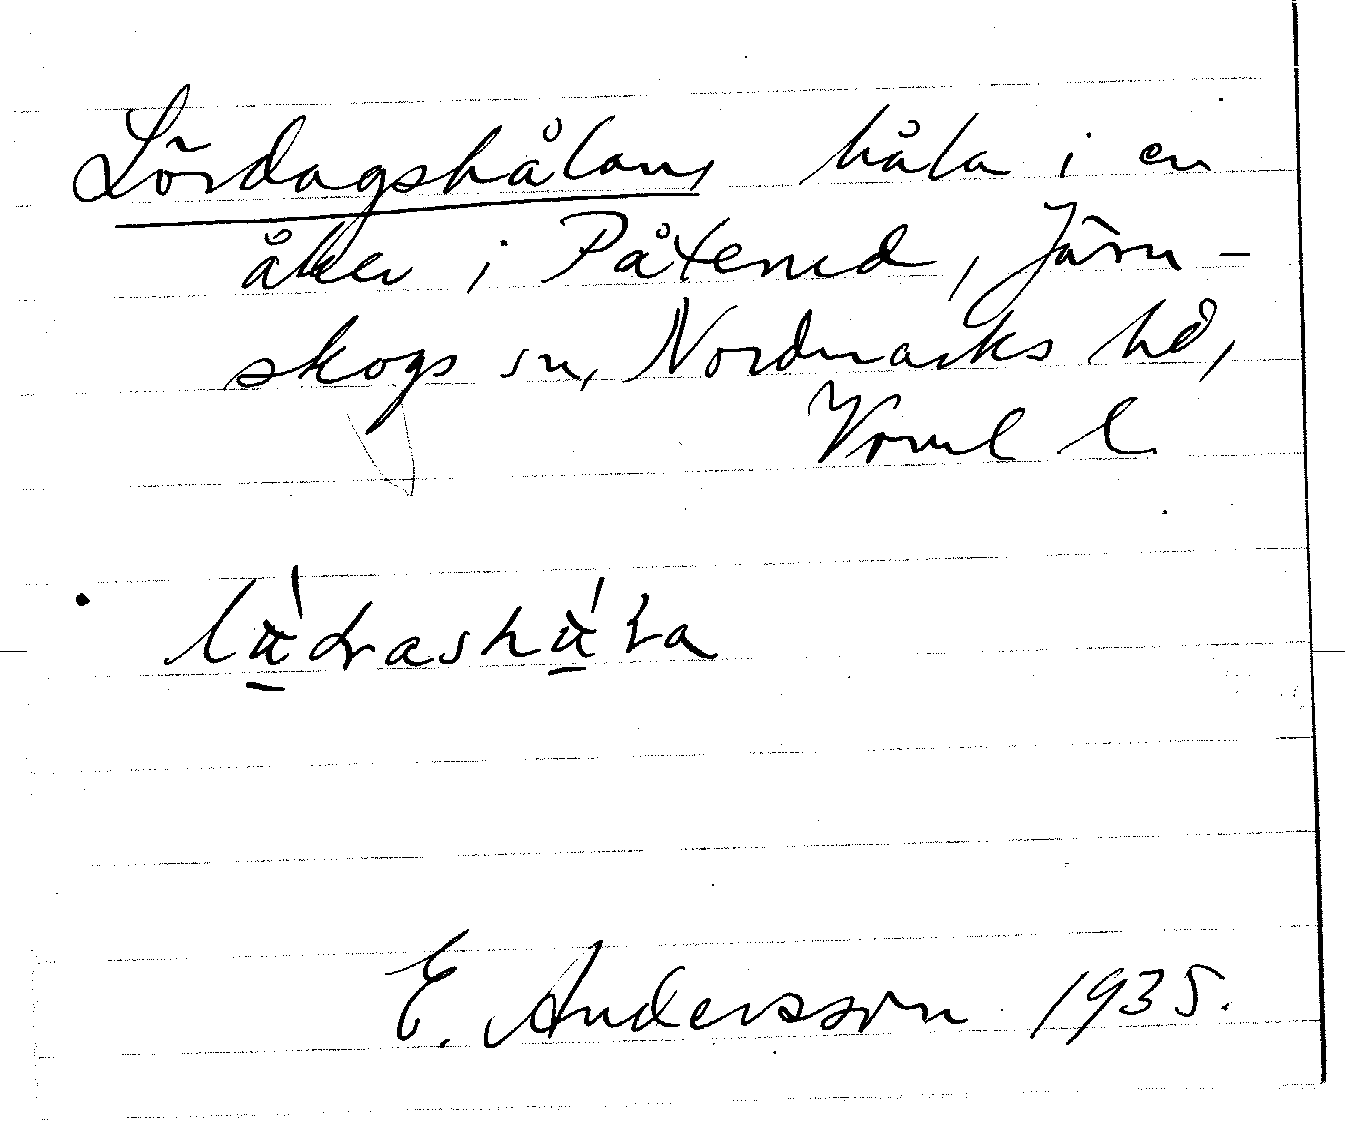 Lördagshålan, håla i en
åker i Påterud, Järn-
skogs sn, Nordmarks hd,
Vrml l.
E. Andersson 1935.